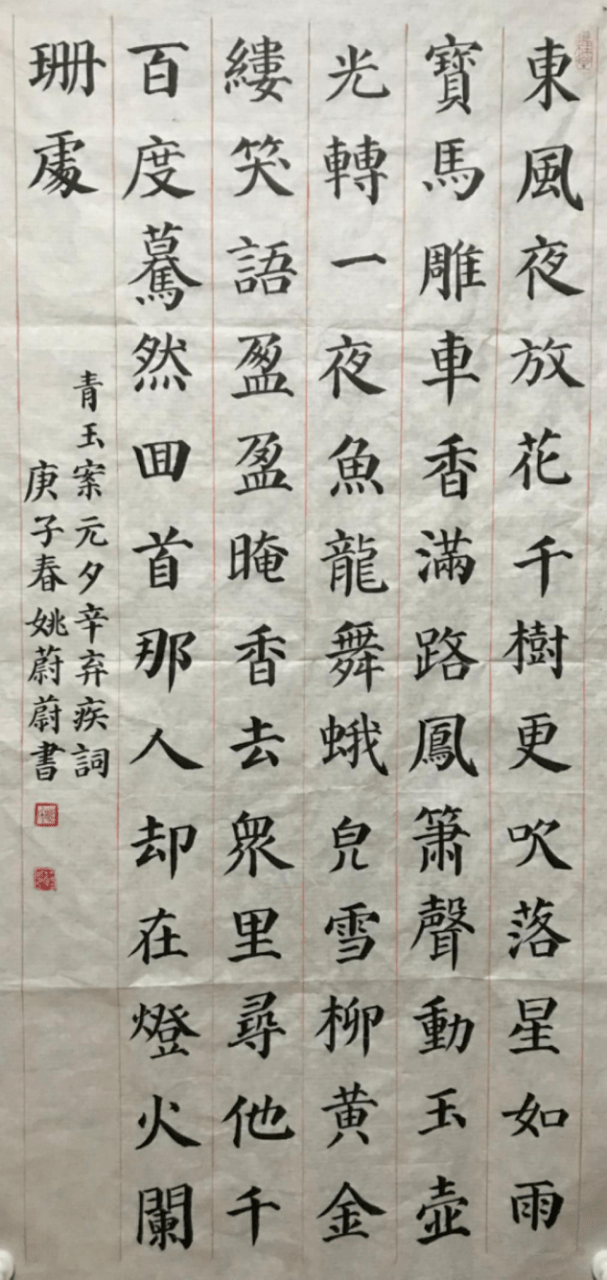 東風夜放花千樹更吹落星如雨
寶馬雕車香滿路鳳簫聲動玉壺
光轉一夜魚龍舞蛾兒雪柳黄金
縷笑語盈盈晻香去衆里尋他千
百度驀然回首那人却在燈火闌
珊處
青玉案元夕辛弃疾詞
庚子春姚蔚蔚書